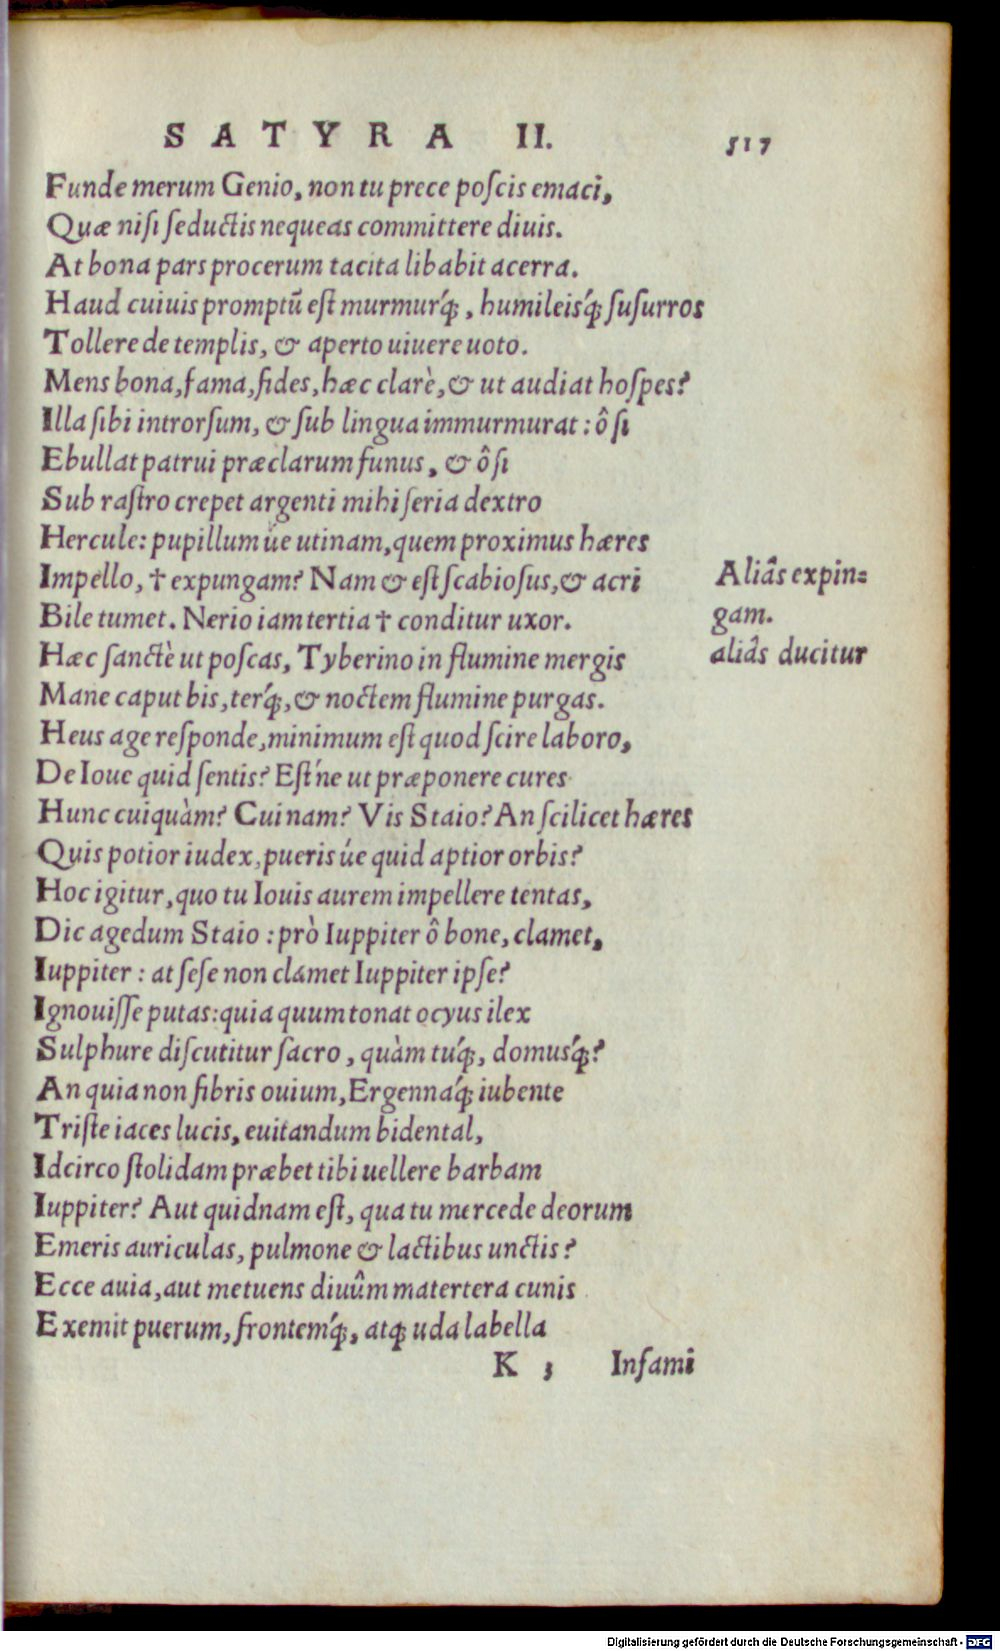 SATYRA II. 517
Funde merum Genio, non tu prece poſcis emaci,
Quæ niſi ſeductis nequeas committere diuis.
At bona pars procerum tacita libabit acerra.
Haud cuiuis promptū eſt murmurq́;, humileisq́; ſuſurros
Tollere de templis, & aperto uiuere uoto.
Mens bona, fama, fides, hæc clarè, & ut audiat hoſpes?
Illa ſibi introrſum, & ſub lingua immurmurat: ô ſi
Ebullat patrui præclarum funus, & ô ſi
Sub raſtro crepet argenti mihi ſeria dextro
Hercule: pupillum úe utinam, quem proximus hæres
Impello, † expungam? Nam & eſt ſcabioſus, & acri
Alias̑ expin=
gam.
Bile tumet. Nerio iam tertia † conditur uxor.
alias̑ ducitur
Hæc ſanctè ut poſcas, Tyberino in flumine mergis
Mane caput bis, terq́;, & noctem flumine purgas.
Heus age reſponde, minimum eſt quod ſcire laboro,
De Ioue quid ſentis? Eſt ́ne ut præponere cures
Hunc cuiquàm? Cuinam? Vis Staio? An ſcilicet hæres
Quis potior iudex, pueris úe quid aptior orbis?
Hoc igitur, quo tu Iouis aurem impellere tentas,
Dic agedum Staio: prò Iuppiter ô bone, clamet,
Iuppiter: at ſeſe non clamet Iuppiter ipſe?
Ignouiſſe putas: quia quum tonat ocyus ilex
Sulphure diſcutitur ſacro, quàm tuq́;, domusq́;?
An quia non fibris ouium, Ergennaq́; iubente
Triſte iaces lucis, euitandum bidental,
Idcirco ſtolidam præbet tibi uellere barbam
Iuppiter? Aut quidnam eſt, qua tu mercede deorum
Emeris auriculas, pulmone & lactibus unctis?
Ecce auia, aut metuens diuûm matertera cunis
Exemit puerum, frontemq́;, atq; uda labella
K 3 Inſami
Digitalisierung gefördert durch die Deutsche Forschungsgemeinschaft - DFG